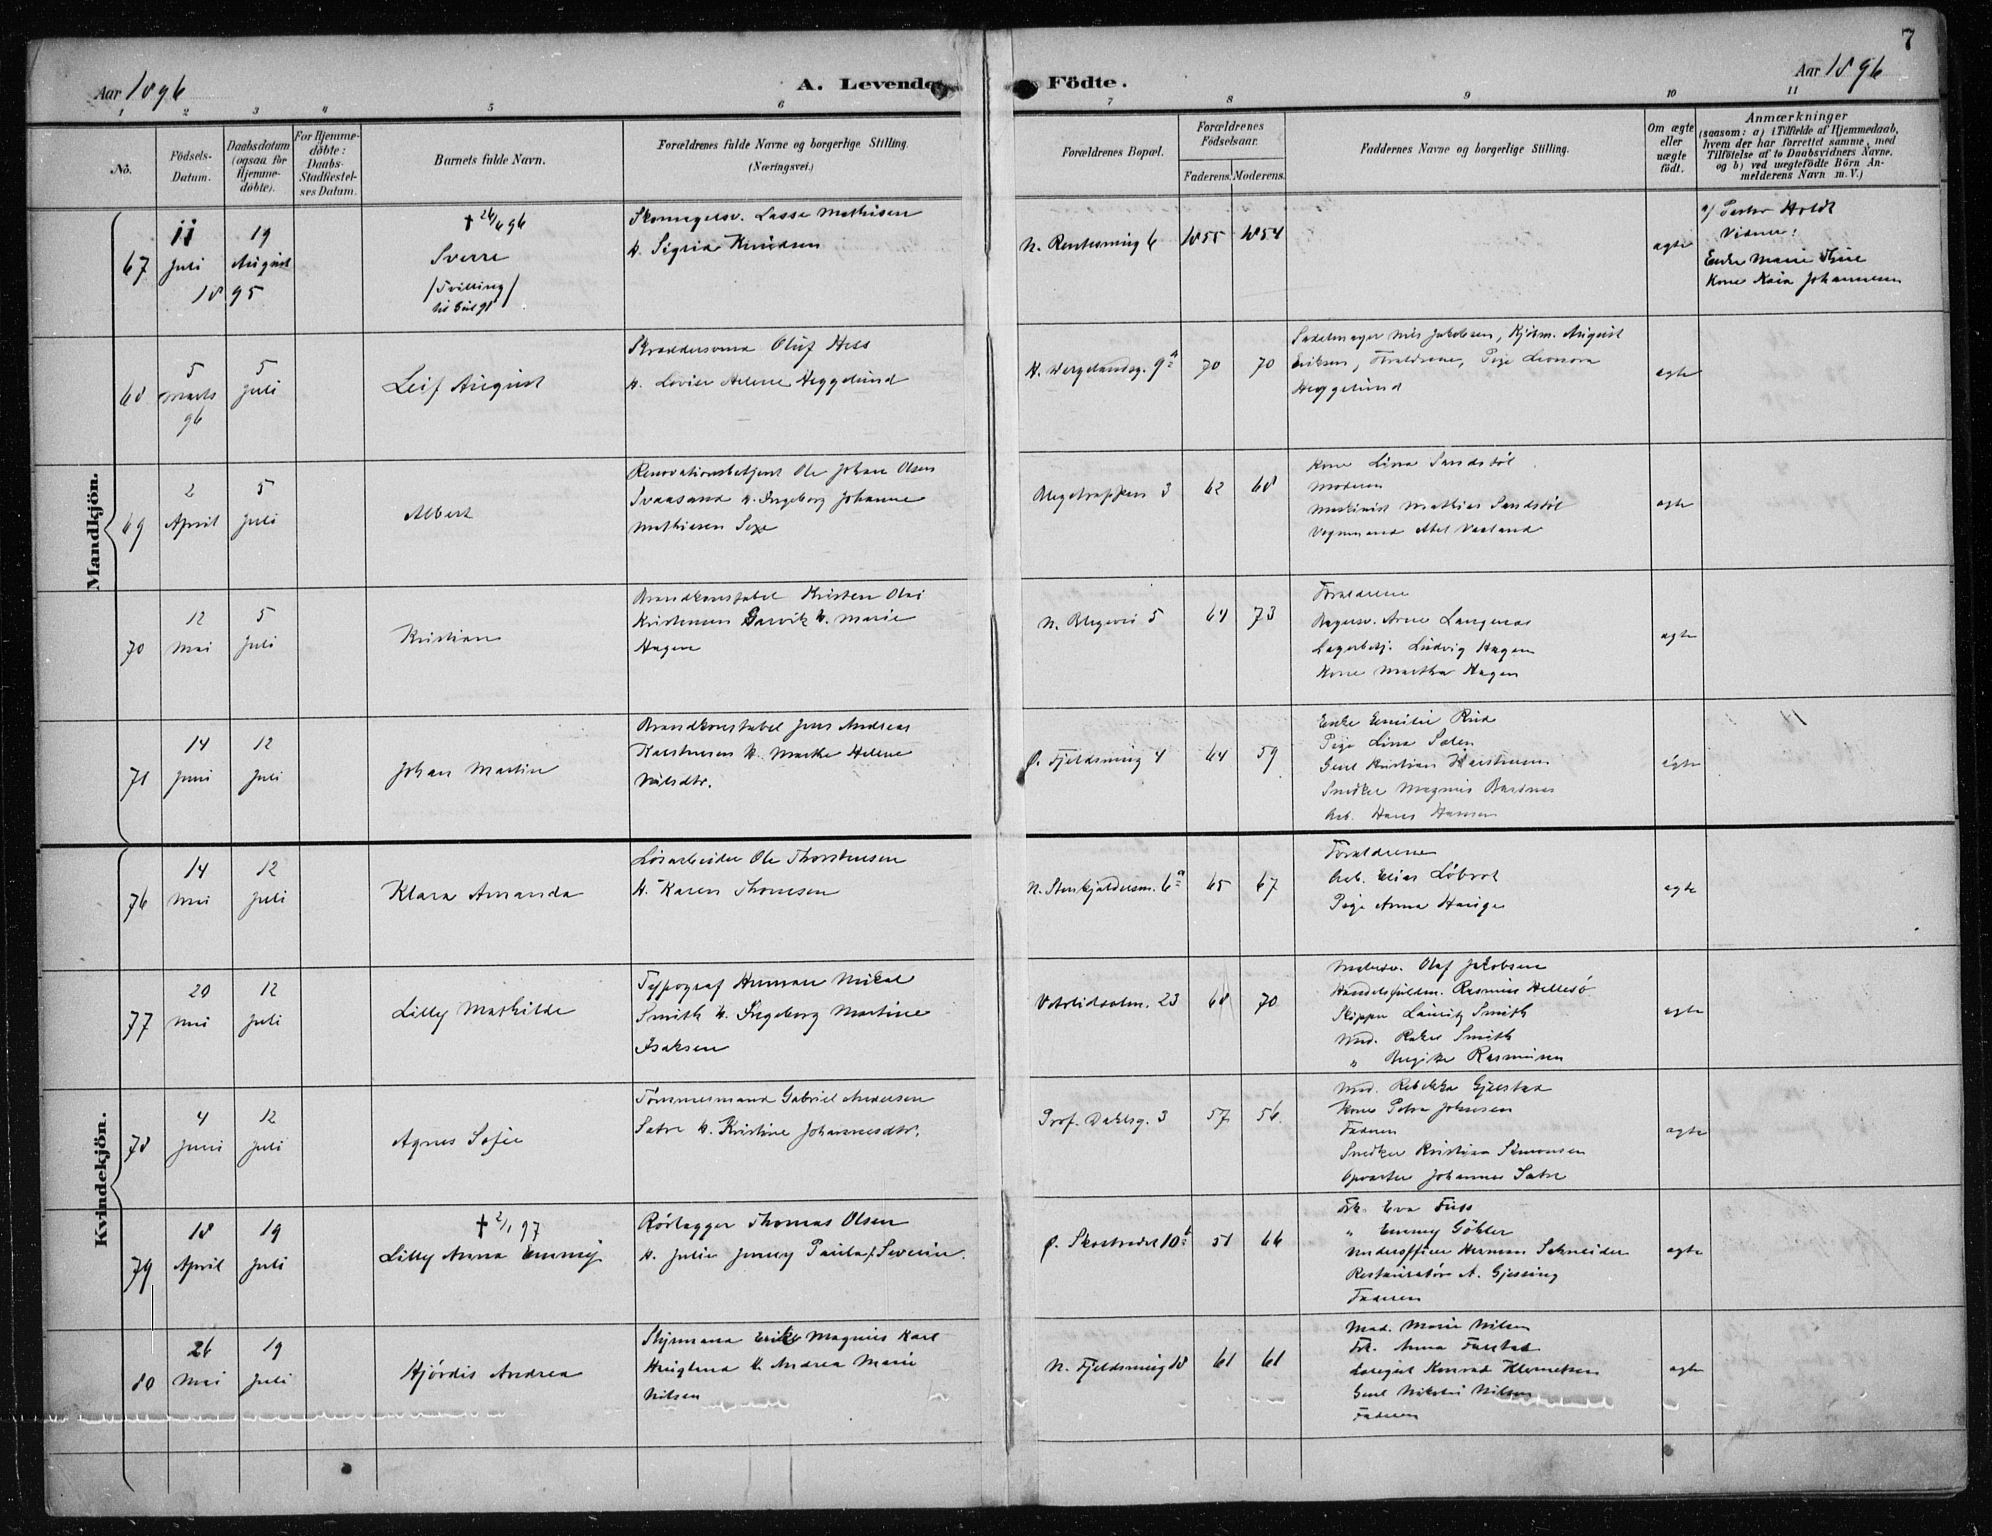 7
Aar 1896
A. Levende Födte.
Aar 1896
1 2 3 4 5 6 7 8 9 10 11
No.
Födsels-Datum.
Daabsdatum (ogsaa for Hjemme-døbte).
For Hjemme-døbte: Daabs-Stadfæstel-ses Datum.
Barnets fulde Navn.
Forældrenes fulde Navne og borgerlige Stilling. (Næringsvei.)
Forældrenes Bopæl.
Forældrenes Födselsaar.
Faderens. Moderens.
Faddernes Navne og borgerlige Stilling.
Om ægte eller uægte födt.
Anmærkninger
(saasom: a) i Tilfælde af Hjemmedaab, hvem der har forrettet samme, med Tilföielse af to Daabsvidners Navne, og b) ved uægtefödte Börn An-melderens Navn m. V.)
Mandkjön.
67
11 Juli 1895
19 August
† 26/6 96
Sverre
/Tvilling/
Skomagersv. Lasse Mathisen
H. Sigrid Knudsen
N. Rentesmug 6
1855 1854
ægte
a/ Pastor Holdt
Vidner:
Enke Marie
Kone Kaia Johannesen
68
5 Marts 96
5 Juli
Leif August
Skræddersvend Oluf Hess
H. Lovise Helene Heggelund
H. Wergelandsg. 9a
70 70
Sadelmager Nils Jakobsen, Kjøbm. August
Eriksen, Forældrene, Pige Leonora
Heggelund
ægte
69
2 April
5 Juli
Albert
Renovationsbetjent Ole Johan Olsen
Svaasand H. Ingeborg Johanne
Mathiesen
Blegetrappen 3
62 68
Kone Lina Sandsbøl
Moderen
Maskinist Mathias Sandsbøl
Vognmand Abel Vaaland
ægte
70
12 Mai
5 Juli
Kristian
Brandkonstabel Kristen Olai
Kristensen H. Marie
Hagen
N. Blegevei 5
64 73
Forældrene
Bagersv. Arne Langenes
Lagerbetj. Ludvig Hagen
Kone Martha Hagen
ægte
71
14 Juni
12 Juli
Johan Martin
Brandkonstabel Jens Andreas
Karstensen H. Marthe Helene
Nilsdtr.
Ø. Fjeldsmug 4
64 59
Enke Emilie Rud
Pige Lina Salen
Gaul Kristian Karstensen
Snedker Magnus
Arb. Hans Hansen
ægte
Kvindekjön.
76
14 Mai
12 Juli
Klara Amanda
Løsarbeider Ole Thorstensen
H. Karen Thomsen
N. Stenkjeldersm. 6a
65 67
Forældrene
Arb. Elias
Pige Anna Hauge
ægte
77
20 Mai
12 Juli
Lilly Mathilde
Typograf Herman Mikal
Smith H. Ingeborg Martine
Isaksen
Vetrlidsalm. 23
68 70
Malersv. Olaf Jakobsen
Handelsfuldm. Rasmus Hellesø
Skipper Lauritz Smith
Mad. Rakel Smith
„ Birgithe Rasmusen
ægte
78
4 Juni
12 Juli
Agnes Sofie
Tømmermand Gabriel Andersen
Sætre H. Kristine Johannesdtr.
Prof. Dahlsg. 3
57 56
Mad. Rebekka Gjelstad
Kone Petra Johnsen
Faderen
Snedker Kristian Simonsen
Opvarter Johannes Sætre
ægte
79
18 April
19 Juli
† 2/1 97
Lilly Anna Emmy
Rørlægger Thomas Olsen
H. Julie Jenny Paula f. Severin
Ø. Skostrædet 10b
51 66
Frk. Eva Fuss
„ Emmy Göhler
Underofficer Herman Schneider
Restauratør A. Gjessing
Faderen
ægte
80
26 Mai
19 Juli
Hjørdis Andrea
Styrmand Erik Magnus Karl
H. Andrea Marie
Nilsen
N. Fjeldsmug 18
61 61
Mad. Marie Nilsen
Frk. Anna Farstad
Konrad Klemetsen
Gaul Nikolai Nilsen
Faderen
ægte